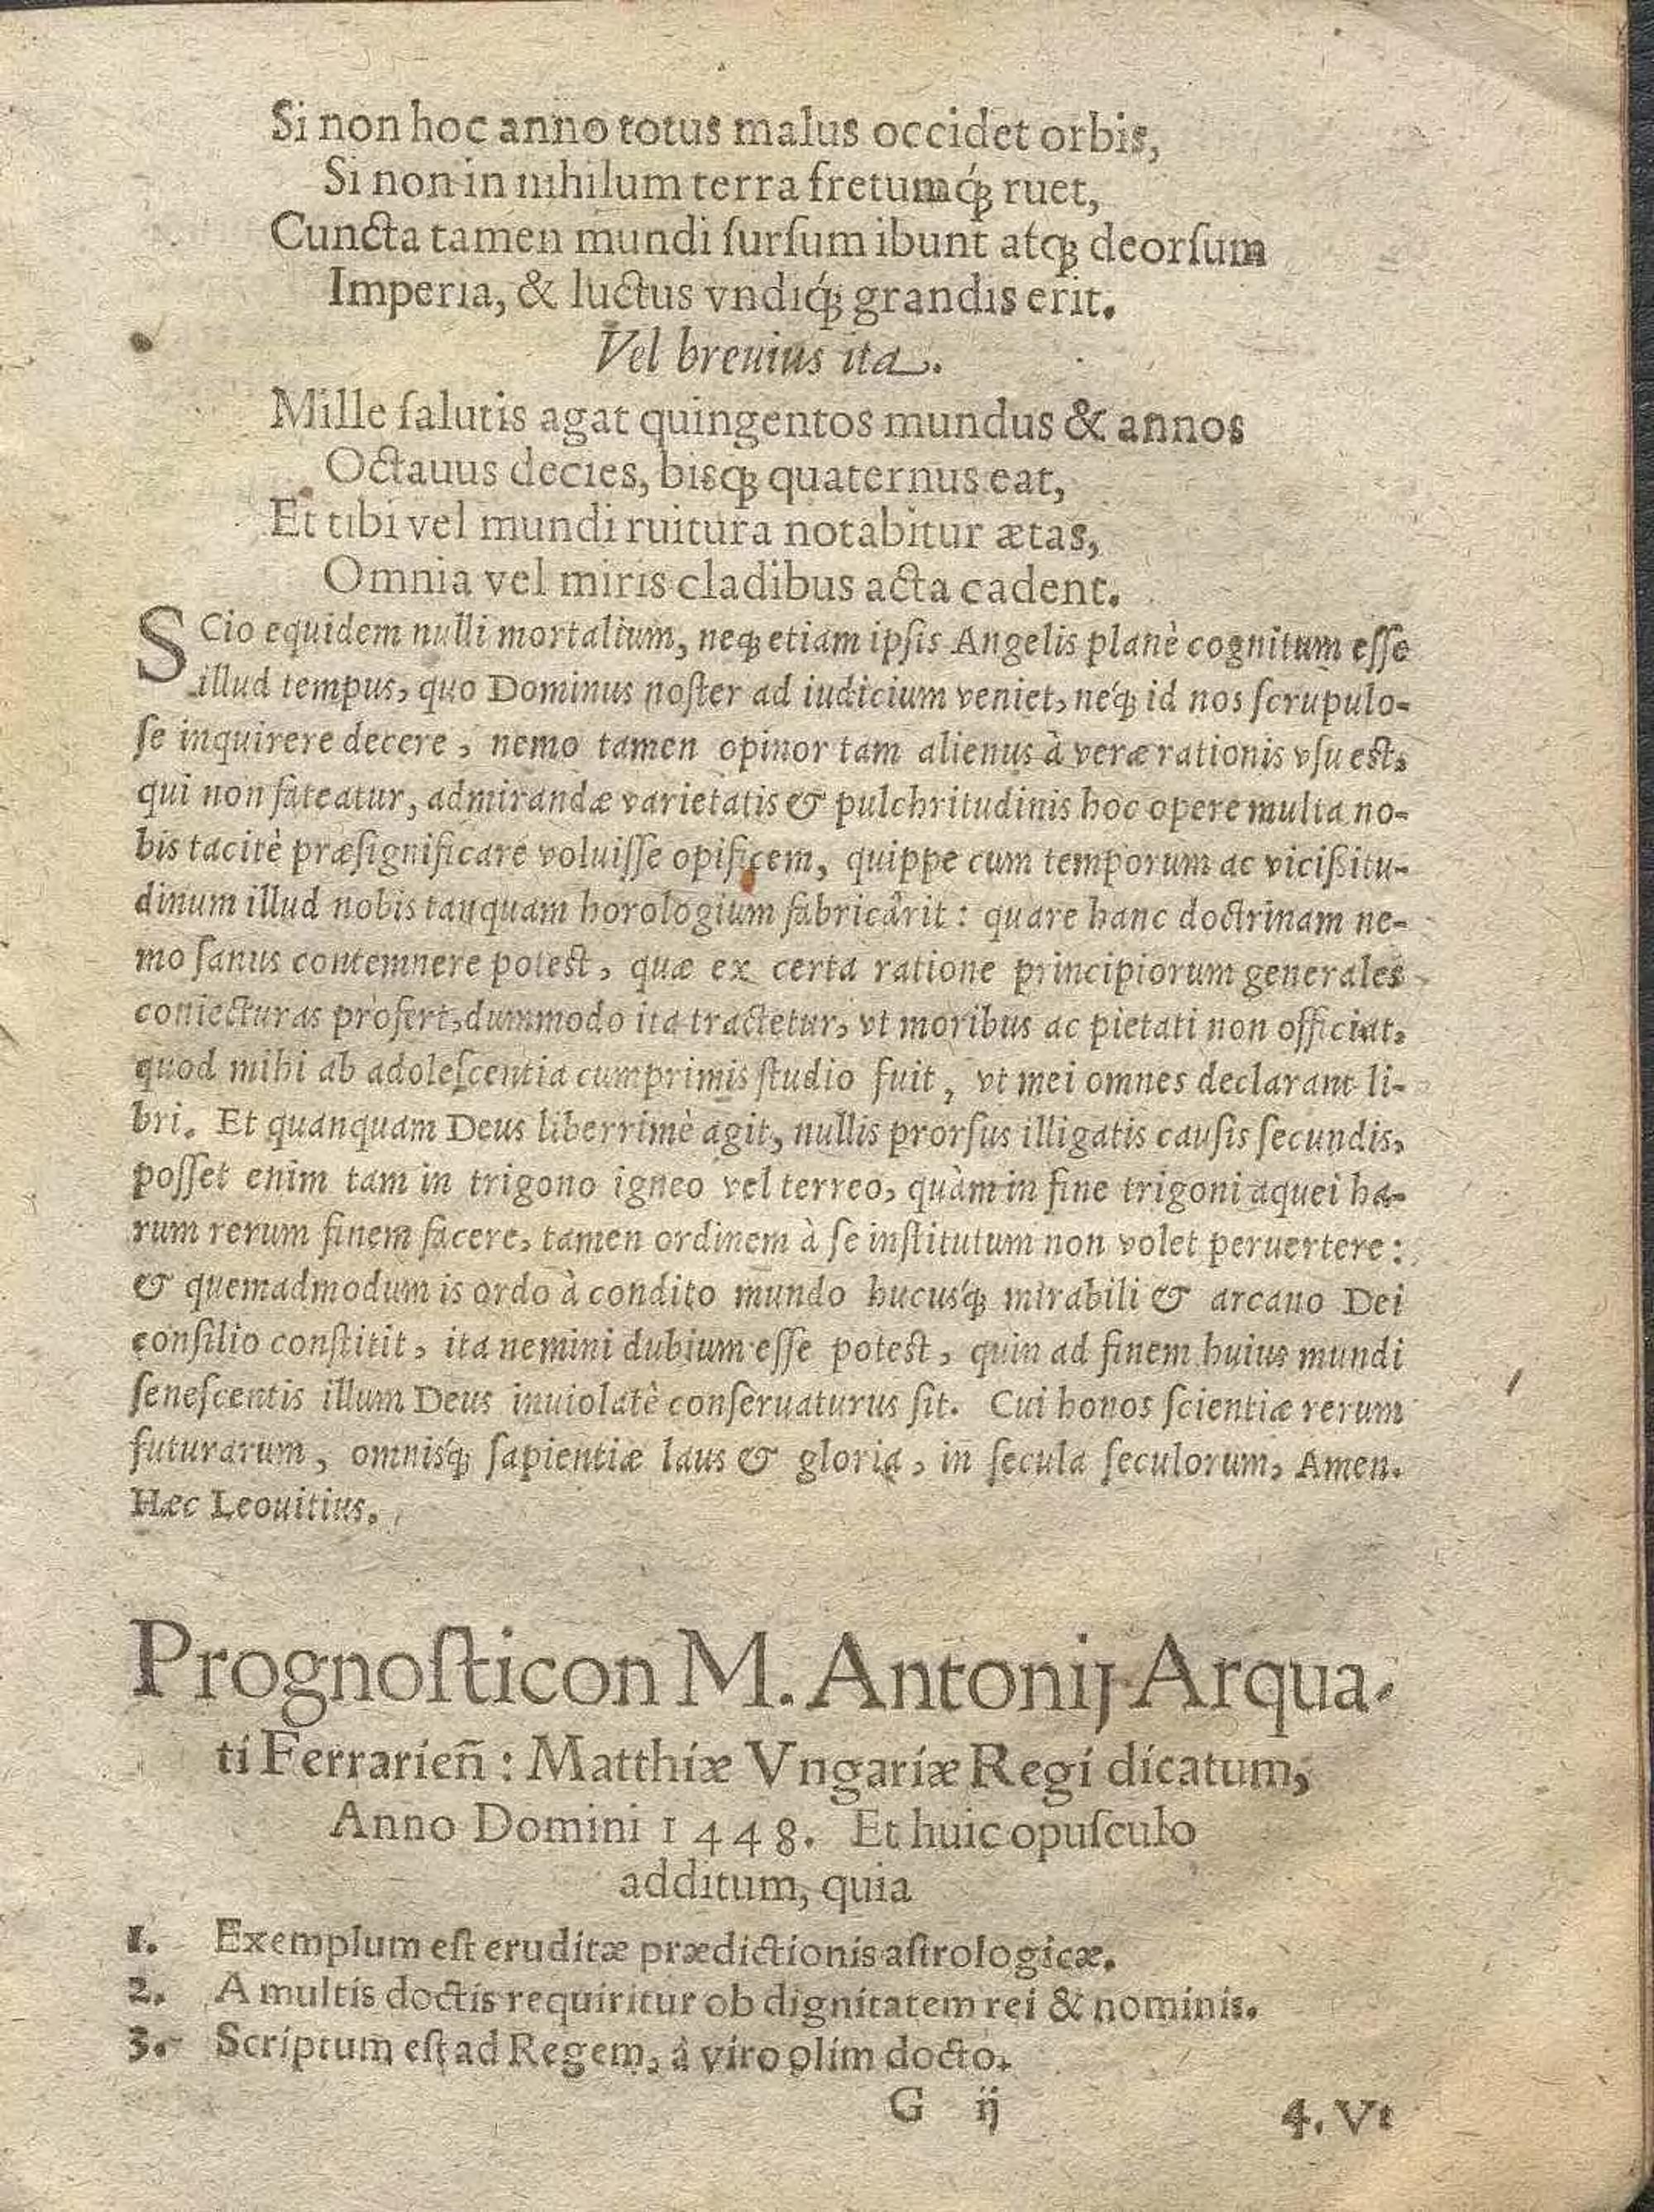 Si non hoc anno totus malus occidet orbis,
Si non in nihilum terra fretumq́ꝫ ruet,
Cuncta tamen mundi ſurſum ibunt atqꝫ deorſum
Imperia, & luctus vndiq́ꝫ grandis erit.
Vel breuius ita.
Mille ſalutis agat quingentos mundus & annos
Octauus decies, bisqꝫ quaternus eat,
Et tibi vel mundi ruitura notabitur ætas,
Omnia vel miris cladibus acta cadent.
SCio equidem nulli mortalium, neqꝫ etiam ipſis Angelis planè cognitum eſſe
illud tempus, quo Dominus noſter ad iudicium veniet, neq́ꝫ id nos ſcrupulo-
ſe inquirere decere, nemo tamen opinor tam alienus à veræ rationis vſu est,
qui non fateatur, admirandæ varietatis & pulchritudinis hoc opere multa no-
bis tacitè præſignificare voluiſſe opificem, quippe cum temporum ac vicißitu-
dinum illud nobis tanquam horologium fabricârit: quare hanc doctrinam ne-
mo ſanus contemnere potest, quæ ex certa ratione principiorum generales
coniecturas profert, dummodo ita tractetur, vt moribus ac pietati non officiat,
quod mihi ab adoleſcentia cumprimis ſtudio fuit, vt mei omnes declarant li-
bri. Et quanquam Deus liberrimè agit, nullis prorſus illigatis cauſis ſecundis,
poſſet enim tam in trigono igneo vel terreo, quàm in fine trigoni aquei ha-
rum rerum finem facere, tamen ordinem à ſe inſtitutum non volet peruertere:
& quemadmodum is ordo à condito mundo hucusq́ꝫ mirabili & arcano Dei
conſilio conſtitit, ita nemini dubium eſſe potest, quin ad finem huius mundi
ſeneſcentis illum Deus inuiolatè conſeruaturus ſit. Cui honos ſcientiæ rerum
futurarum, omnisq́ꝫ ſapientiæ laus & gloria, in ſecula ſeculorum, Amen.
Hæc Leouitius.
Prognoſticon M. Antonij Arqua-
ti Ferrarieñ: Matthiæ Vngariæ Regi dicatum,
Anno Domini 1448. Et huic opuſculo
additum, quia
1. Exemplum eſt eruditæ prædictionis aſtrologicæ.
2. A multis doctis requiritur ob dignitatem rei & nominis.
3. Scriptum eſt ad Regem, à viro olim docto.
G ij 4. Vt